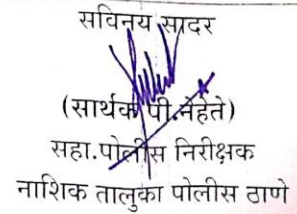 सविनय सादर
(सार्थक पी.नेहेते)
सहा.पोलीस निरीक्षक
नाशिक तालुका पोलीस ठाणे